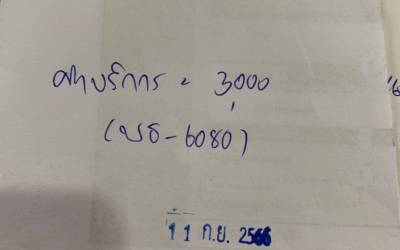 ค่าบริการ = 3,000
(บธ-6080)
11 ก.ย. 2566